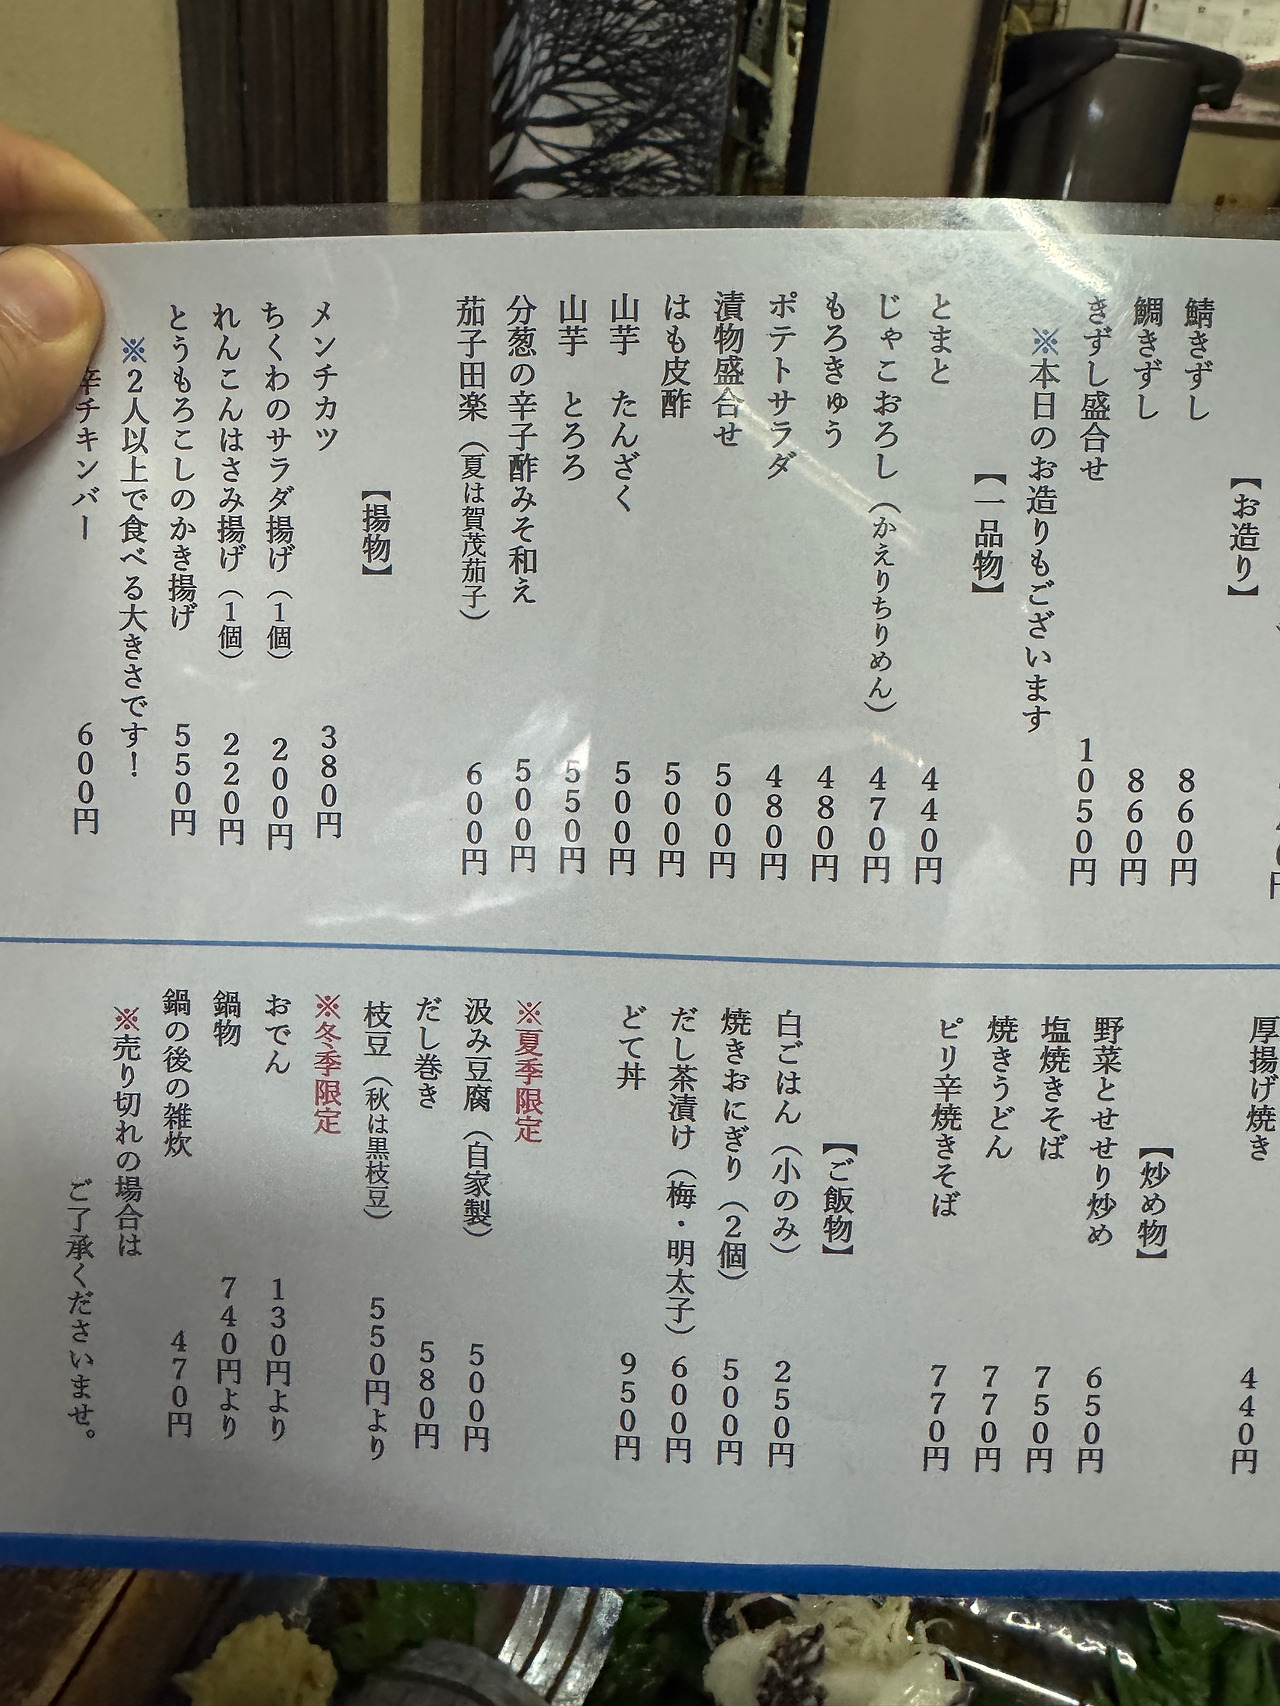 【お造り】
鯖きずし 860円
鯛きずし 860円
きずし盛合せ 1050円
※本日のお造りもございます
【一品物】
とまと 440円
じゃこおろし(かえりちりめん) 470円
もろきゅう 480円
ポテトサラダ 480円
漬物盛合せ 500円
はも皮酢 500円
山芋 たんざく 500円
山芋 とろろ 550円
分葱の辛子酢みそ和え 500円
茄子田楽(夏は賀茂茄子) 600円
【揚物】
メンチカツ 380円
ちくわのサラダ揚げ(1個) 200円
れんこんはさみ揚げ(1個) 220円
とうもろこしのかき揚げ 550円
※2人以上で食べる大きさです!
辛チキンバー 600円
厚揚げ焼き 440円
【炒め物】
野菜とせせり炒め 650円
塩焼きそば 750円
焼きうどん 770円
ピリ辛焼きそば 770円
【ご飯物】
白ごはん(小のみ) 250円
焼きおにぎり(2個) 500円
だし茶漬け(梅・明太子) 600円
どて丼 950円
※夏季限定
汲み豆腐(自家製) 500円
だし巻き 580円
枝豆(秋は黒枝豆) 550円より
※冬季限定
おでん 130円より
鍋物 740円より
鍋の後の雑炊 470円
※売り切れの場合は
ご了承くださいませ。